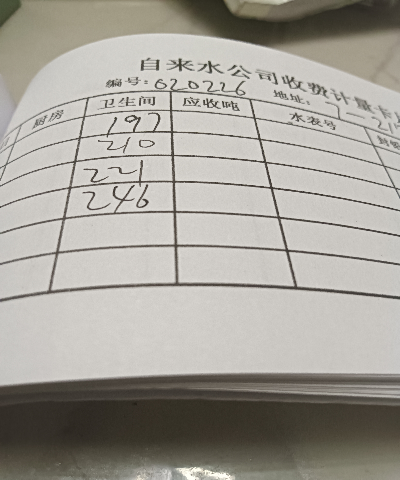 自来水公司收费计量卡
编号:620226 地址:7-21
厨房 卫生间 应收吨 水表号
197
210
221
246